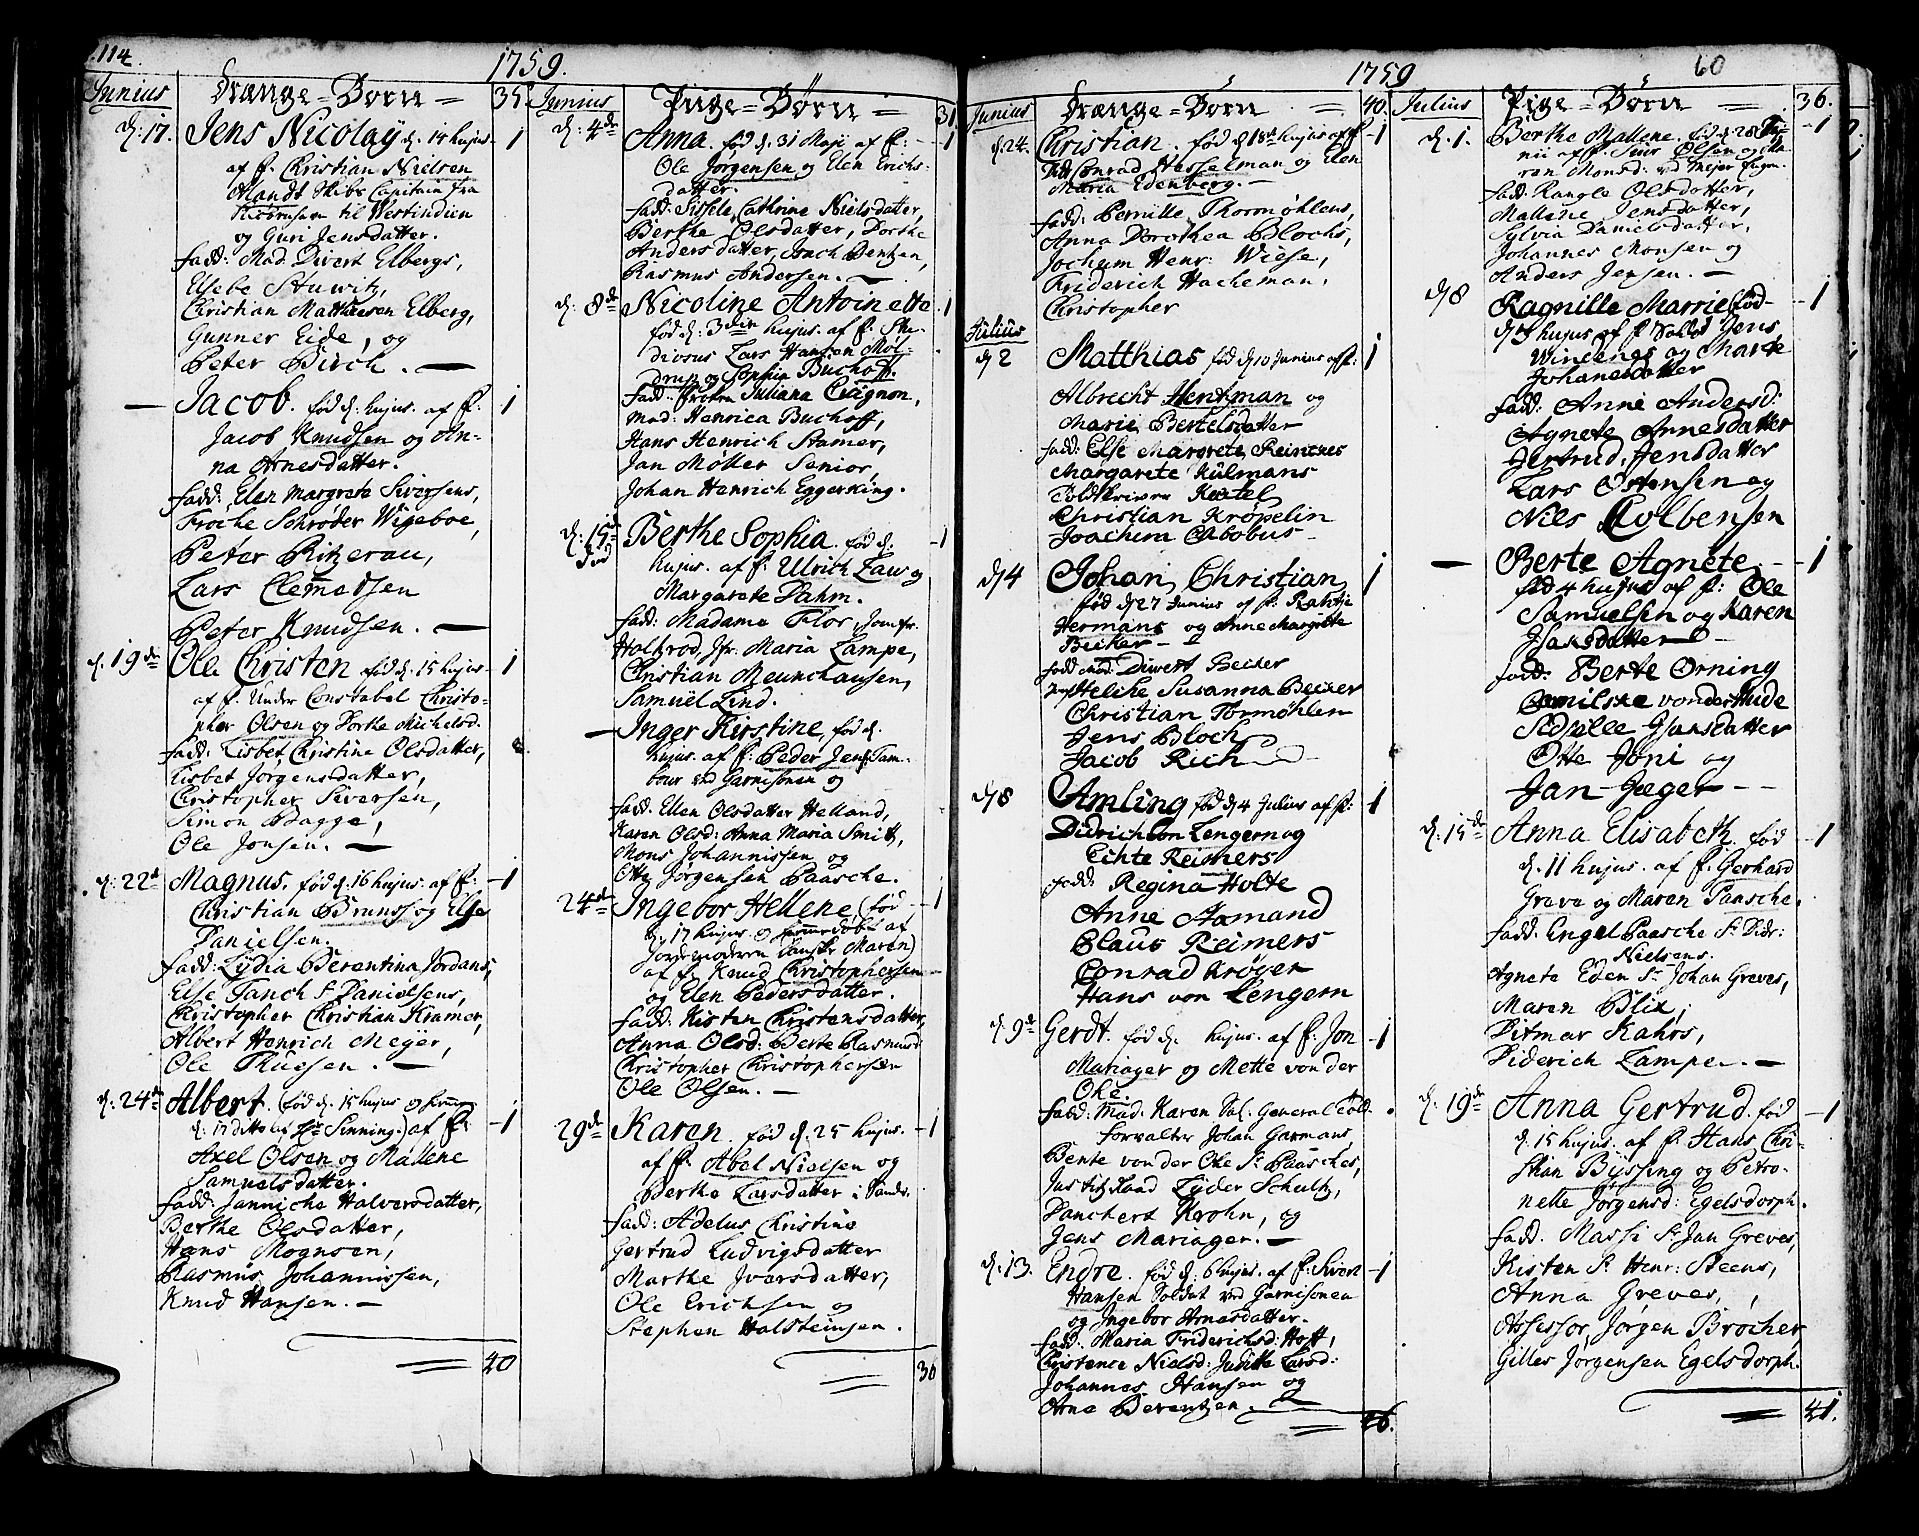 114.
1759.
Junius
Drænge = Børn =
35
d: 17.
Jens Nicolaÿ d. 14 hujus
1
af f. Christian Nielsen
Mandt Skibs Capitain fra
til Westindien
og Guri Jensdatter.
fadd: Mad. Divert Elbergs,
Elsebe Stuwitz,
Christian Mathiesen Elberg,
Gunner Eide, og
Peter Birch. —
— Jacob. fød d: hujus. af f:
1
Jacob Knudsen og An-
na Arnesdatter.
fadd: Elen Margrete Siversens,
Troche Schrøder Wigeboe,
Peter Ritzerau,
Lars Clemetsen
Peter Knudsen. —
d. 19de
Ole Christen fød d. 15 hujus
1
af f. Under Constabel Christo-
pher Olsen og Dorthe Michelsd.
fadd: Lisbet Christine Olsdatter,
Lisbet Jørgensdatter,
Christopher Siversen,
Simon Bagge,
Ole Jonsen. —
d: 22d
Magnus. fød d. 16 hujus. af f:
1
Christian Brunss og Else
Danielsen.
fadd: Lydia Berentina Jordans,
Else Tanch Sr Danielsens,
Christopher Christian Kramer,
Albert Henrich Meyer,
Ole Thuesen. —
d: 24de
Albert. (fød d. 15 hujus og
1
d: 17 ditto af Sinning.) af f:
Axel Olsen og Mallene
Samuelsdatter.
fadd: Jannicke Halversdatter,
Berthe Olsdatter,
Hans Mognsen,
Rasmus Johannissen,
Knud Hansen. —
40
Junius
Pige = Børn =
31
d: 4de
Anna. fød d. 31 Maji af f:
Ole Jørgensen og Elen Erichs-
datter.
fadd: Sissele Cathrine Nielsdatter,
Berthe Olsdatter, Dorthe
Andersdatter, Isach Bentzen,
Rasmus Andersen. —
d: 8de
Nicoline Antoinette
1
fød d: 3die hujus. af f: Stu-
diosus Lars Hansen Mol-
drup og Sophia Buchoff.
fadd: Juliana Cragnon,
Mad: Henrica Buchoff,
Hans Henrich Stamer,
Jan Møller Senior,
Johan Henrich Eggerking.
d: 15de
Berthe Sophia. fød d.
1
hujus. af f: Ulrich Lau og
Margarete Dahm.
fadd: Madame Flor, Jomfr.
Holtzrod, Jfr. Maria Lampe,
Christian Meunchausen,
Samuel Lind.
— Inger Kirstine, fød d.
hujus. af f: Peder Jens: Tam-
bour ved Garnisonen og
fadd: Ellen Olsdatter Helland,
Karen Olsd: Anna Maria Smitt,
Mons Johannissen og
Otto Jørgensen Paasche.
24de
Ingebor Hellene (fød
1
d. 17 hujus. og hjemmedøbt af
Jordemoderen Maren)
af f. Knud Christophersen
og Elen Pedersdatter.
fadd: Kisten Christensdatter,
Anna Olsd: Berte Rasmusd
Christopher Christophersen
Ole Olsen. —
29de
Karen. fød d. 25 hujus.
1
af f. Abel Nielsen og
Berthe Larsdatter i Sands.
fadd: Adelus Christine
Gertrud Ludvigsdatter
Marthe Iversdatter,
Ole Erichsen og
Stephen Halsteinsen.
36
1759
60
Junius
Drænge = Børn =
40.
d. 24.
Christian. fød d. 18de hujus af f
1
Conrad Hesselman og Elen
Maria Edenberg. —
fadd: Pernille Thormøhlens,
Anna Dorothea Blochs,
Jochum Henr: Wiese,
Friderich Hacheman,
Christopher
Julius
d/2
Matthias fød d/10 Junius af f:
1
Albrecht Hentzman og
Marie Bertelsdatter
fadd: Else Margrete Reinckes
Margarete Külmans
Toldskriver Kietel
Christian Krøpelin
Joachim Cabobus —
d/4
Johan Christian
1
fød d/27 Junius af f:
Hermans og Anne Margrette
Becker —
fadd: Mad: Divert Becker
Jmf Helche Susanna Becker
Christian Tormøhlen
Jens Bloch
Jacob Rich
d/8
Amling fød d/4 Julius af f:
1
Didrich von Lengern og
Echte Reimers
fadd: Regina Holte
Anne Aamand
Claus Reimers
Conrad Krøger
Hans von Lengern
d. 9de
Gerdt. fød d. hujus. af f: Jon
1
Mariager og Mette von der
Ohe.
fadd: Mad. Karen Sal: General Told-
forvalter Johan Garmans,
Bente von der Ohe Sr Paasches,
Justitz Raad Lyder Schultz,
Danchert Krohn, og
Jens Mariager. —
d: 13.
Endre. fød d. 6 hujus. af f: Siver
1
Hansen Soldat ved Garnisonen
og Ingebor Arnesdatter.
fadd: Maria Friderichsd: Hoff,
Christence Nielsd: Juditte Larsd:
Johannes Hansen og
Arne Berentzen. —
46.
Julius
Pige = Børn =
36.
d. 1.
Berthe Mallene. fød d. 28 Ju-
1
nii af f: Siur Olsen og Ma-
ren Monsd: ved Mejer
fadd: Rangle Olsdatter,
Mallene Jensdatter,
Sylvia Danielsdatter,
Johannes Monsen og
Anders Jensen. —
d/8
Ragnille Marrie fød
1
d/3 hujus af f: Soldt Jens
Windings og Marte
Johanesdatter
fadd: Anne Andersd:
Agnete Arnesdatter
Jertrud Jensdatter
Lars Ostensen og
Nils Colbensen
— Berte Agnete
1
fød 4 hujus af f: Ole
Samuelsen og Karen
Isaksdatter —
fadd: Berte Orning
von der Hude
Sidselle Isaksdatter
Otte Joni og
Jan Jæger —
d: 15de
Anna Elisabeth. fød
1
d. 11 hujus. af f: Gerhard
Greve og Maren Paasche.
fadd: Engel Paasche Sr Didr:
Nielsens.
Agnete Eden Sr Johan Greves,
Maren Blix,
Ditmar Kahrs,
Diderich Lampe. —
d: 19de
Anna Gertrud. fød
1
d. 15 hujus. af f: Hans Chri-
stian Byssing og Petro-
nelle Jørgensd: Egelsdorph.
fadd: Massi Sr Jan Greves,
Kisten Sr Henr: Steens,
Anna Greves,
Assessor Jørgen Brøcher
Gilles Jørgensen Egelsdorph.
41.